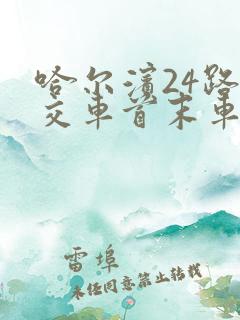 哈尔滨24路
交车首末车
雷埠
未经同意禁止转载